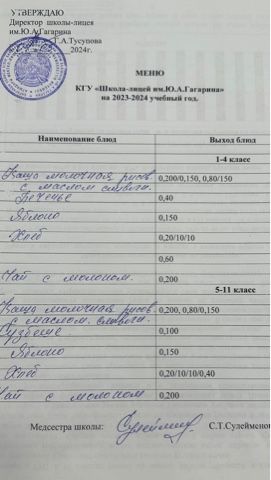 УТВЕРЖДАЮ
Директор школы-лицея
им.Ю.А.Гагарина
Г.А.Тусупова
2024г.
МЕНЮ
КГУ «Школа-лицей им.Ю.А.Гагарина»
на 2023-2024 учебный год.
Наименование блюд Выход блюд
1-4 класс
Каша молочная рисов. 0,200/0,150, 0,80/150
с маслом сливочн.
Печенье 0,40
Яблоко 0,150
Хлеб 0,20/10/10
0,60
Чай с молоком. 0,200
5-11 класс
Каша молочная рисов. 0,200, 0,80/0,150
с маслом. сливочн.
0,100
Яблоко 0,150
Хлеб 0,20/10/10/0,40
Чай с молоком 0,200
Медсестра школы: С.Т.Сулейменов